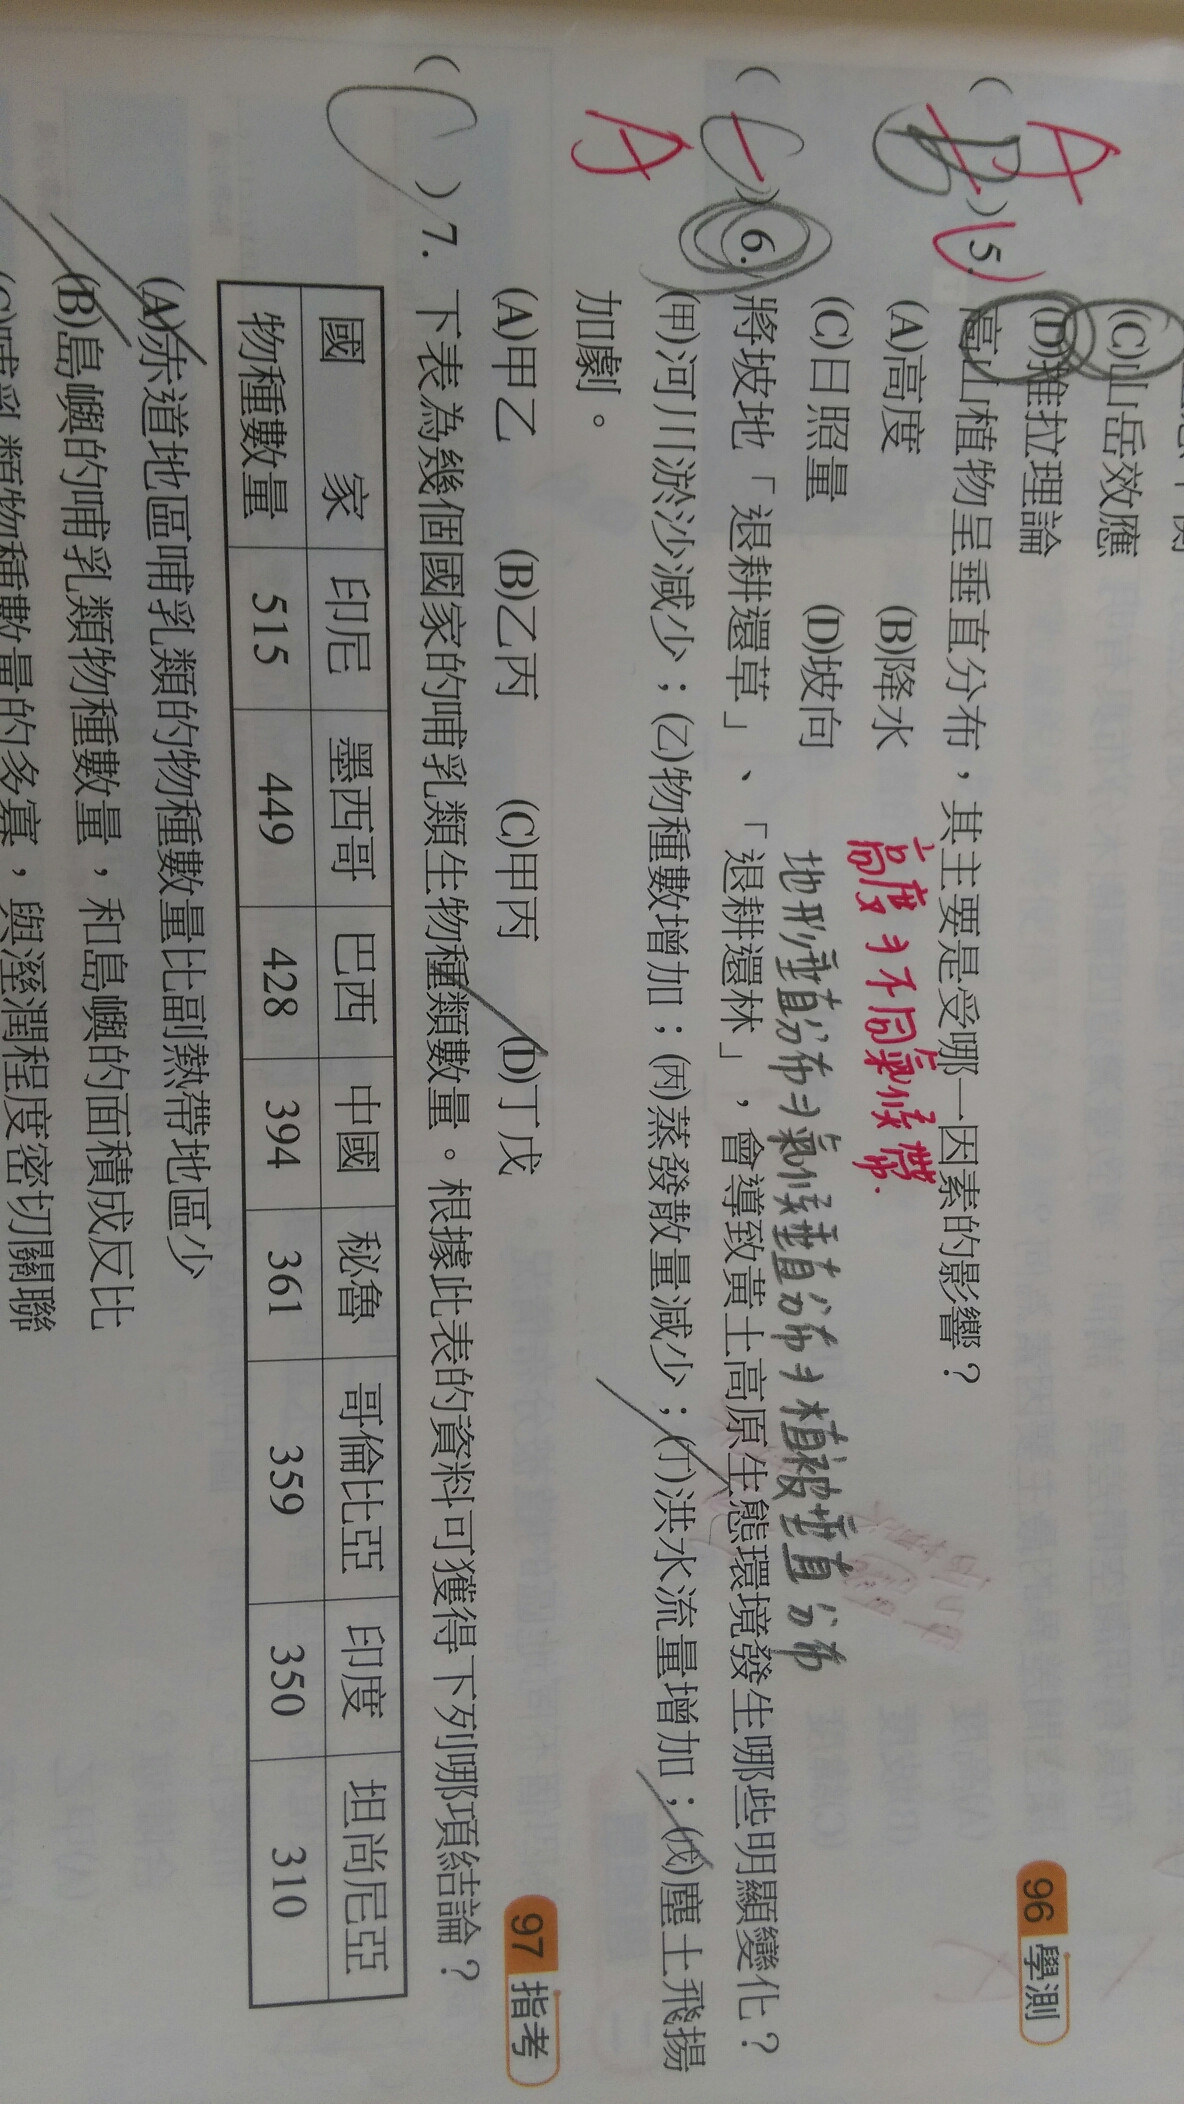 (C)山岳效應
(D)推拉理論
A
( B ) 5. 高山植物呈垂直分布，其主要是受哪一因素的影響？
96 學測
(A)高度 (B)降水
高度→不同氣候帶.
(C)日照量 (D)坡向
地形垂直分布→氣候垂直分布→植被垂直分布
( C ) 6. 將坡地「退耕還草」、「退耕還林」，會導致黃土高原生態環境發生哪些明顯變化？
A
(甲)河川淤沙減少；(乙)物種數增加；(丙)蒸發散量減少；(丁)洪水流量增加；(戊)塵土飛揚
加劇。
97 指考
(A)甲乙 (B)乙丙 (C)甲丙 (D)丁戊
( C ) 7. 下表為幾個國家的哺乳類生物種類數量。根據此表的資料可獲得下列哪項結論？
國家 印尼 墨西哥 巴西 中國 秘魯 哥倫比亞 印度 坦尚尼亞
物種數量 515 449 428 394 361 359 350 310
(A)赤道地區哺乳類的物種數量比副熱帶地區少
(B)島嶼的哺乳類物種數量，和島嶼的面積成反比
(C)哺乳類物種數量的多寡，與溼潤程度密切關聯